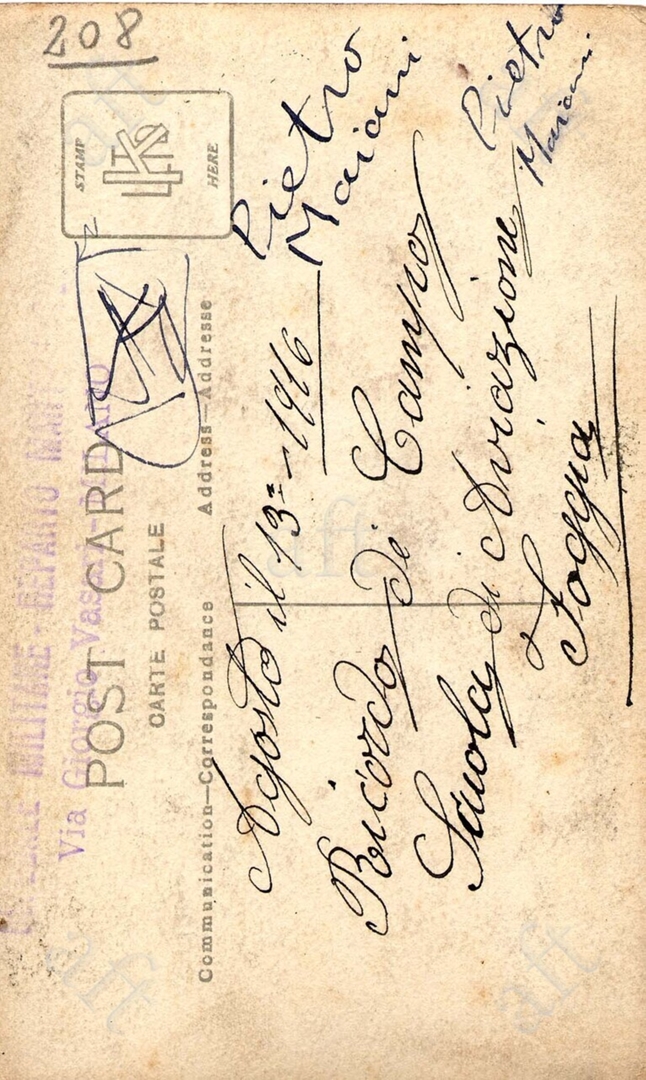 208
STAMP
HERE
POST CARD
CARTE POSTALE
Communication—Correspondance
Address—Addresse
MILITARE - REPARTO
Via Giorgio Vasari - MILANO
Agosto il 13 - 1916
Ricordo di Campo
Scuola di Aviazione
Foggia
Pietro
Mariani
Pietro
Mariani
aft
aft
aft
aft